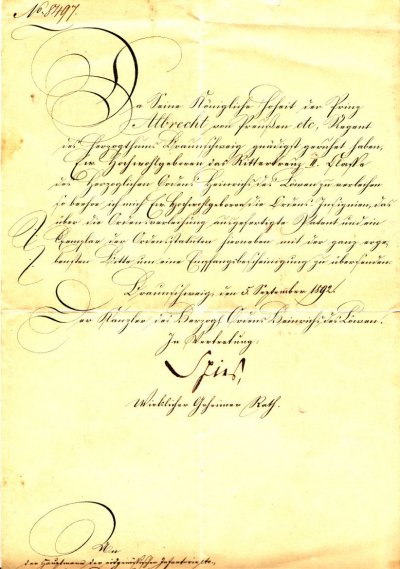 No. 8497.
Da Seine Königliche Hoheit der Prinz
Albrecht von Preußen etc, Regent
des Herzogthums Braunschweig gnädigst geruhet haben,
Ew. Hochwohlgeboren das Ritterkreuz II. Classe
des Herzoglichen Ordens Heinrichs des Löwen zu verleihen
so beehre ich mich Ew. Hochwohlgeboren die Ordens-Insignien, das
über die Ordensverleihung ausgefertigte Patent und ein
Exemplar der Ordensstatuten hierneben mit der ganz erge-
bensten Bitte um eine Empfangsbescheinigung zu übersenden.
Braunschweig, den 5. September 1892.
Der Kanzler des Herzogl. Ordens Heinrichs des Löwen.
In Vertretung:
Spies,
Wirklicher Geheimer Rath.
An
den Hauptmann der eidgenössischen Infanterie etc.,